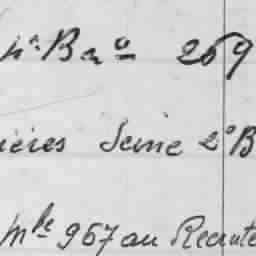 Bon 269
ières Seine 2º B
mle 967 au Recrute